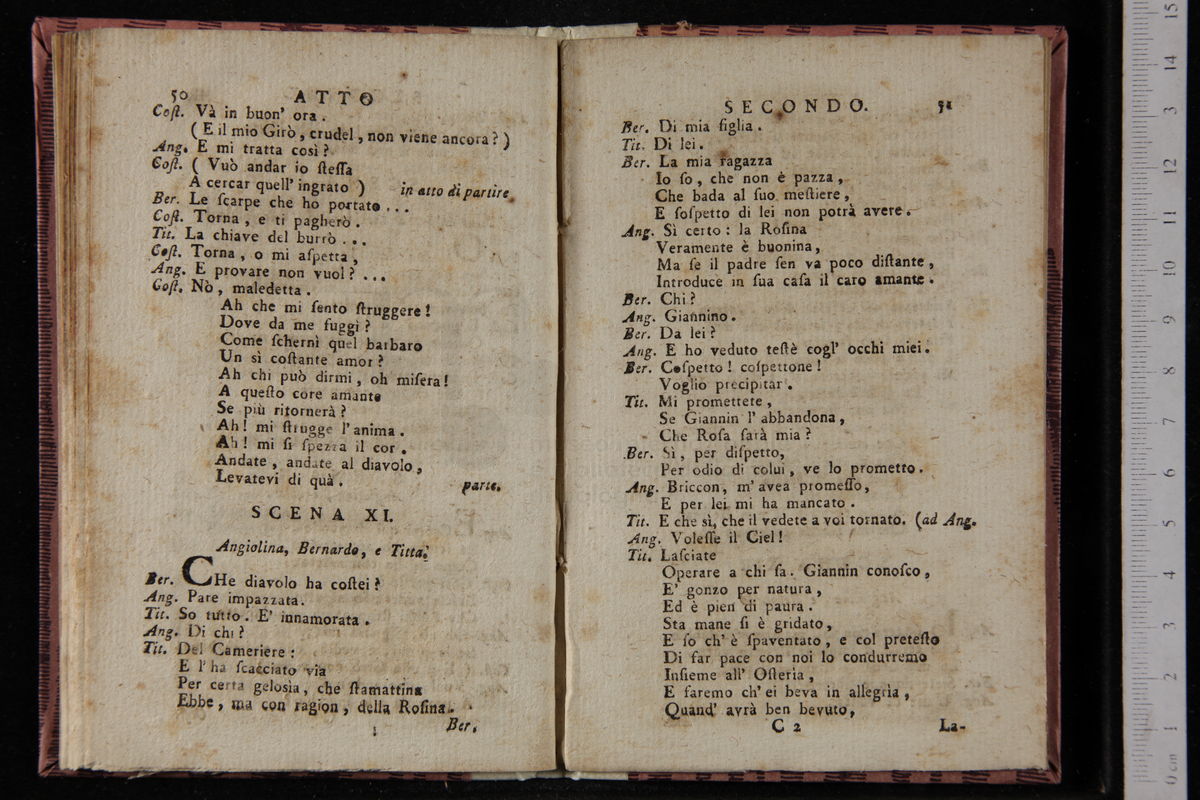 50 ATTO
Coſt. Và in buon' ora.
( E il mio Girò, crudel, non viene ancora? )
Ang. E mi tratta così?
Coſt. ( Vuò andar io ſteſſa
A cercar quell' ingrato ) in atto di partire.
Ber. Le ſcarpe che ho portato ...
Coſt. Torna, e ti pagherò.
Tit. La chiave del burrò ...
Coſt. Torna, o mi aſpetta,
Ang. E provare non vuol? ...
Coſt. Nò, maledetta.
Ah che mi ſento ſtruggere!
Dove da me fuggì?
Come ſchernì quel barbaro
Un sì coſtante amor?
Ah chi può dirmi, oh miſera!
A queſto core amante
Se più ritornerà?
Ah! mi ſtrugge l'anima.
Ah! mi ſi ſpezza il cor.
Andate, andate al diavolo,
Levatevi di quà. parte.
SCENA XI.
Angiolina, Bernardo, e Titta.
Ber. CHe diavolo ha coſtei?
Ang. Pare impazzata.
Tit. So tutto. E' innamorata.
Ang. Di chi?
Tit. Del Cameriere:
E l'ha ſcacciato via
Per certa geloſia, che ſtamattina
Ebbe, ma con ragion, della Roſina.
Ber.
SECONDO. 51
Ber. Di mia figlia.
Tit. Di lei.
Ber. La mia ragazza
Io ſo, che non è pazza,
Che bada al ſuo meſtiere,
E ſoſpetto di lei non potrà avere.
Ang. Sì certo: la Roſina
Veramente è buonina,
Ma ſe il padre ſen va poco diſtante,
Introduce in ſua caſa il caro amante.
Ber. Chi?
Ang. Giannino.
Ber. Da lei?
Ang. E ho veduto teſtè cogl' occhi miei.
Ber. Coſpetto! coſpettone!
Voglio precipitar.
Tit. Mi promettete,
Se Giannin l' abbandona,
Che Roſa ſarà mia?
Ber. Sì, per diſpetto,
Per odio di colui, ve lo prometto.
Ang. Briccon, m' avea promeſſo,
E per lei mi ha mancato.
Tit. E che sì, che il vedete a voi tornato. (ad Ang.
Ang. Voleſſe il Ciel!
Tit. Laſciate
Operare a chi ſa. Giannin conoſco,
E' gonzo per natura,
Ed è pien di paura.
Sta mane ſi è gridato,
E ſo ch' è ſpaventato, e col preteſto
Di far pace con noi lo condurremo
Inſieme all' Oſteria,
E faremo ch' ei beva in allegria,
Quand' avrà ben bevuto,
C 2 La-
0 cm 1 2 3 4 5 6 7 8 9 10 11 12 3 14 15